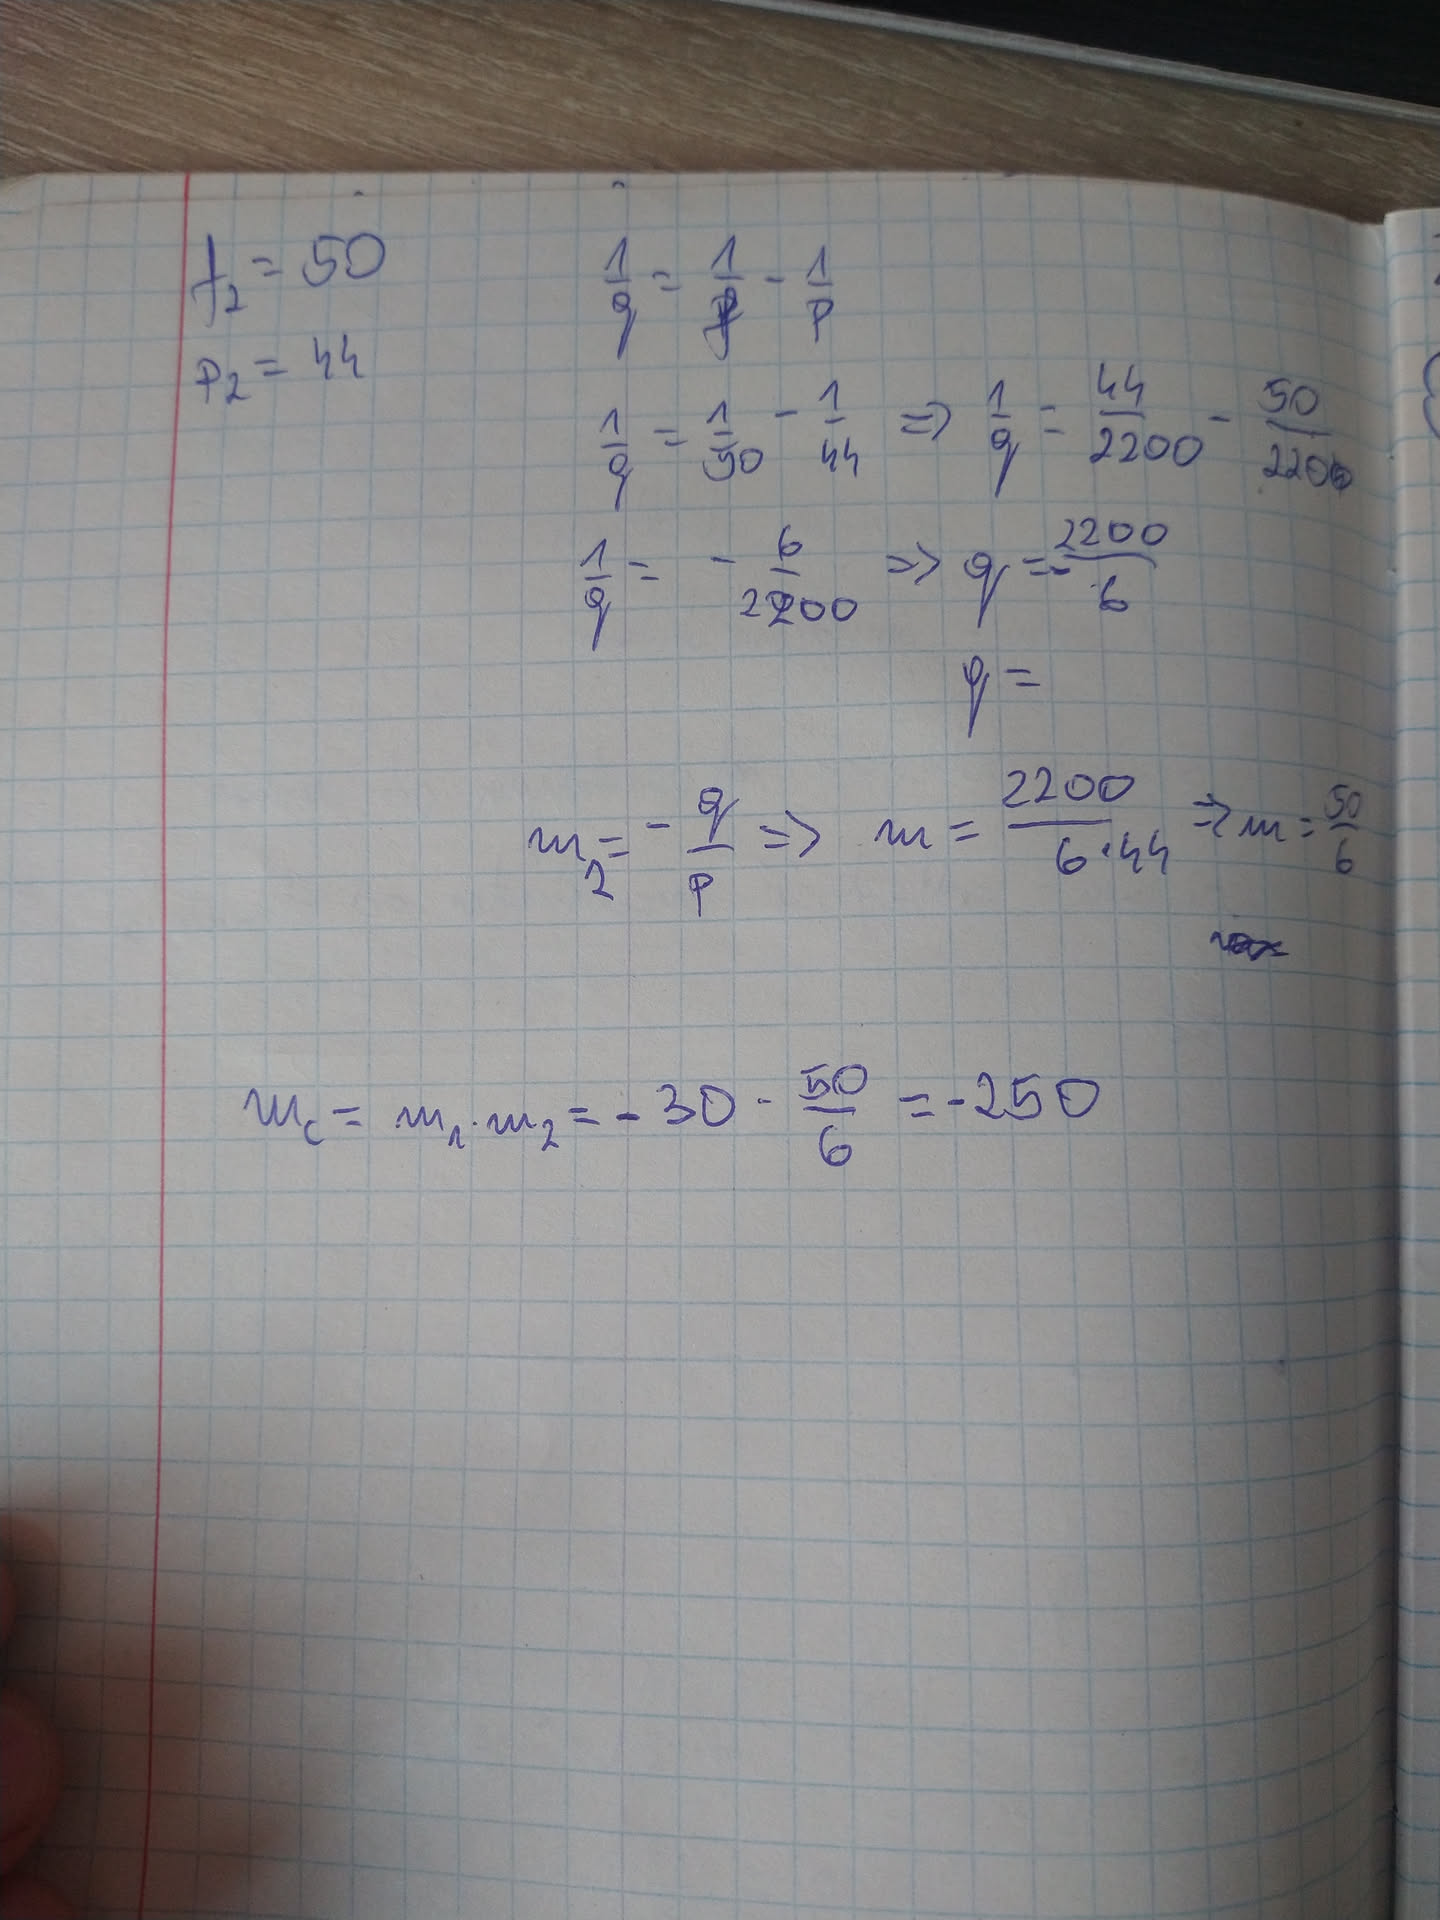 f₂ = 50
1/q = 1/f - 1/p
p₂ = 44
1/q = 1/50 - 1/44 => 1/q = 44/2200 - 50/2200
1/q = - 6/2200 => q = - 2200/6
q =
m₂ = - q/p => m = 2200/(6·44) => m = 50/6
m_c = m₁·m₂ = - 30 · 50/6 = -250